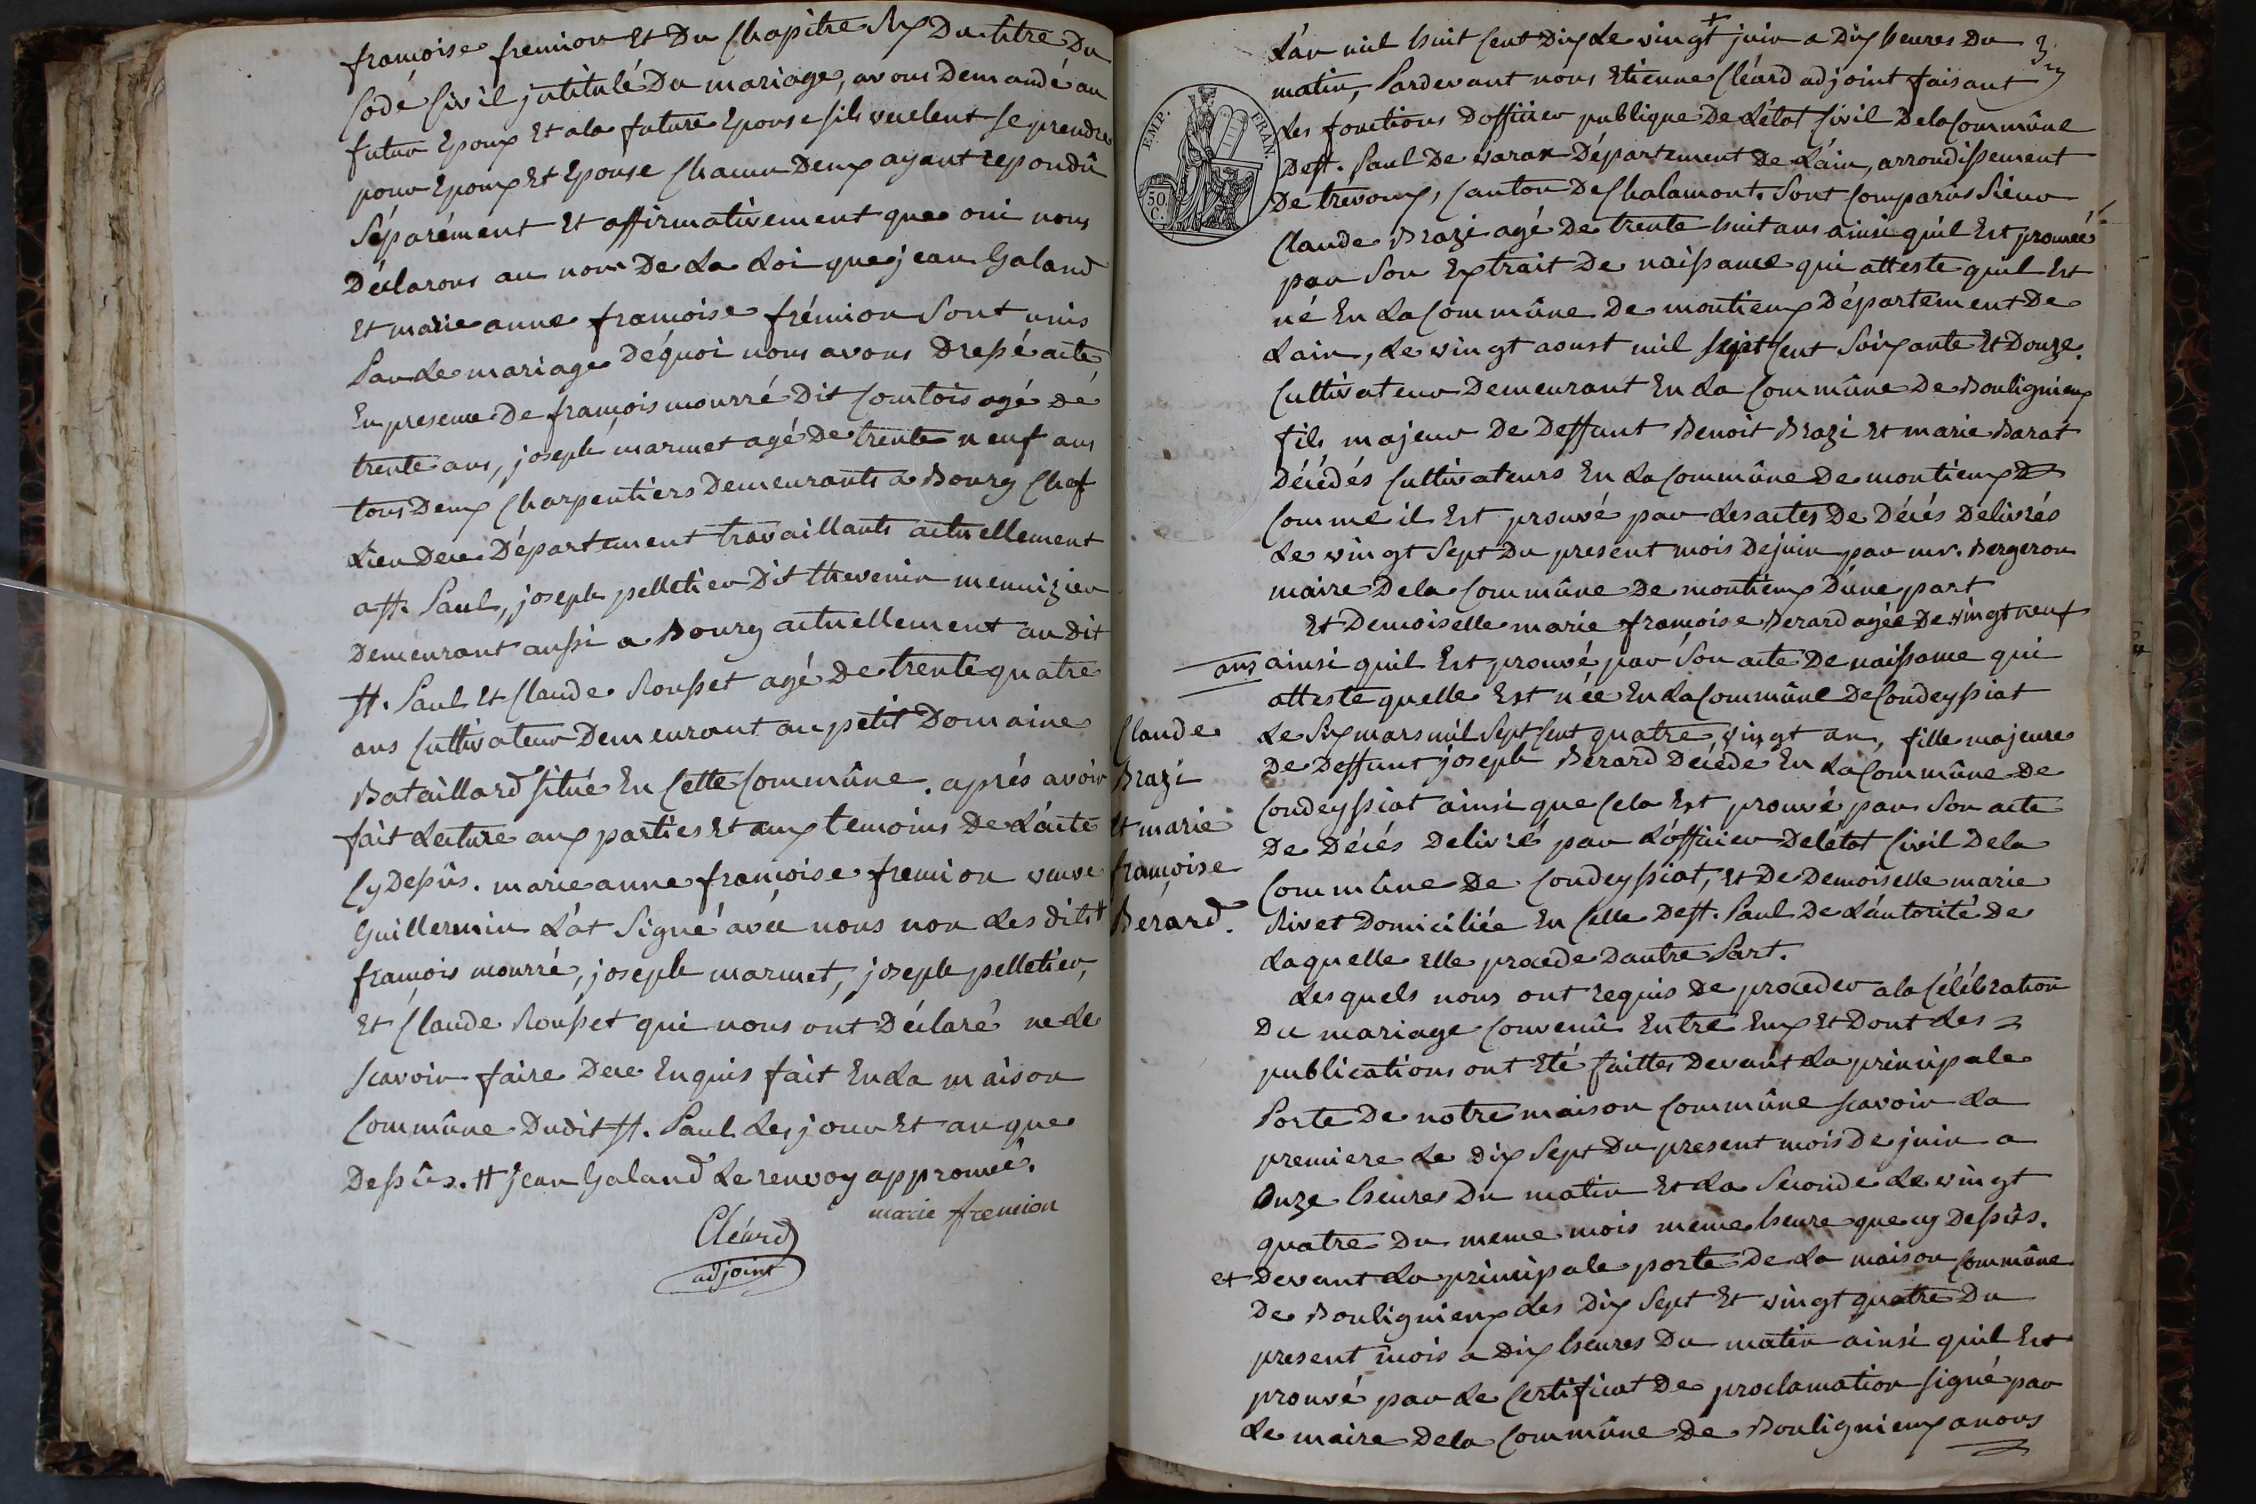 françoise fremion Et Du Chapitre Six Du titre Du
Code Civil jntitulé Du mariage, avons Demandé au
futur Epoux Et a la future Epouse sils veulent se prendre
pour Epoux Et Epouse Chacun Deux ayant repondû
Séparément Et affirmativement que oui nous
Déclarons au nom De La Loi que jean Galand
Et marie anne françoise frémion Sont unis
Par Le mariage Déquoi nous avons Dressé acte
En presence De françois mourré Dit Comtois agé dé
trente ans, joseph marmet agé De trente neuf ans
tous Deux Charpentiers Demeurants a Bourg Chef
Lieu Dece Département travaillants actuellement
a St. Paul, joseph pelletier Dit thevenin menuizier
Demeurant aussi a Bourg actuellement au dit
St. Paul Et Claude Rousset agé De trente quatre
ans Cultivateur Demeurant au petit Domaine
Bataillard situé En Cette Commûne. aprés avoir
fait Lecture aux parties Et aux temoins De L'acte
Cy Dessûs. marie anne françoise fremion veuve
Guillermin L'at Signé avéc nous non Les dits #
françois mourré, joseph marmet, joseph pelletier,
Et Claude Rousset qui nous ont Déclaré ne Le
scavoir faire Dece Enquis fait En La maison
Commûne Dudit St. Paul Les jour Et an que
Dessûs. # Jean Galand Le renvoy approuvé.
marie fremion
Cléard
adjoint
3
L'an mil huit Cent Dix Le vingt + juin a Dix heures Du
matin, Pardevant nous Etienne Cléard adjoint faisant
Les fonctions Dofficier publique De L'état Civil De la Commûne
De St. Paul De varax Département De L'ain, arrondissement
De trevoux, Canton De Chalamont. Sont Comparûs Sieur
EMP. FRAN.
50. C.
Claude Brazi agé De trente huit ans ainsi quil Est prouvé
par Son Extrait De naissance qui atteste quil Est
né En La Commûne De montieux Département De
Lain, Le vingt aoust mil sept Cent Soixante Et Douze.
Cultivateur Demeurant En La Commûne De Bouligneux
fils majeur De Deffunt Benoit Brazi Et marie Barat
Décédés Cultivateurs En La Commûne De montieux
Comme il Est prouvé par Les actes De Décés Delivrés
Le vingt Sept Du present mois De juin par mr. Bergeron
maire De la Commûne De montieux D'une part
Et Demoiselle marie françoise Berard agée De vingt neuf
ans ainsi quil Est prouvé par Son acte De naissance qui
atteste quelle Est née En La Commûne De Condeyssiat
Claude
Brazi
Et marie
françoise
Berard.
Le Six mars mil Sept Cent quatre vingt un, fille majeure
De Deffunt joseph Bérard Décédé En La Commûne De
Condeyssiat ainsi que Cela Est prouvé par Son acte
De Décés Delivré par L'officier De létat Civil De la
Commûne De Condeyssiat, Et De Demoiselle marie
Rivet Domiciliée En Celle De St. Paul De L'autorité De
Laquelle Elle procede Dautre Part.
Lesquels nous ont requis De proceder a la Célébration
Du mariage Convenû Entre Eux Et Dont Les
publications ont Eté faittes Devant La principale
Porte De notre maison Commûne scavoir La
premiere Le Dix Sept Du present mois De juin a
Onze heures Du matin Et La Seconde Le vingt
quatre Du meme mois meme heure que cy Dessûs.
et Devant La principale porte De La maison Commûne
De Bouligneux Les Dix Sept Et vingt quatre Du
present mois a Dix heures Du matin ainsi quil Est
prouvé par Le Certificat De proclamation signé par
Le maire De la Commûne De Bouligneux a nous